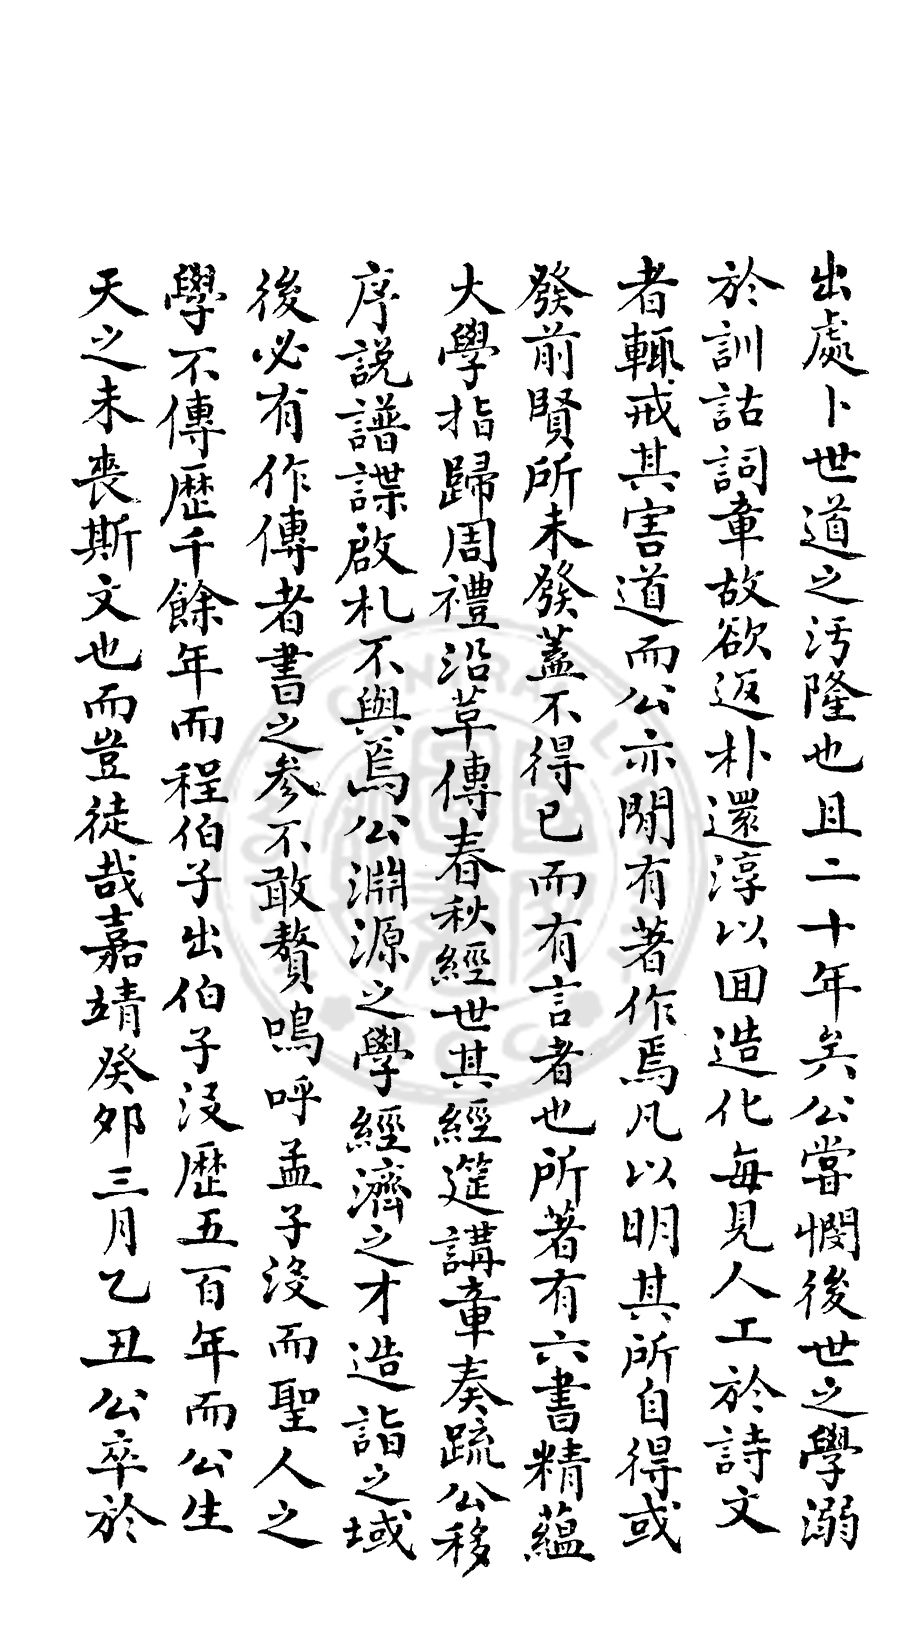 出處卜世道之汚隆也且二十年矣公嘗憫後世之學溺
於訓詁詞章故欲返朴還淳以囬造化每見人工於詩文
者輒戒其害道而公亦閒有著作焉凡以明其所自得或
發前賢所未發蓋不得已而有言者也所著有六書精蘊
大學指歸周禮沿革傳春秋經世其經筵講章奏疏公移
序説譜諜啟札不與焉公淵源之學經濟之才造詣之域
後必有作傳者書之参不敢贅嗚呼孟子沒而聖人之
學不傳歷千餘年而程伯子出伯子沒歷五百年而公生
天之未喪斯文也而豈徒哉嘉靖癸夘三月乙丑公卒於